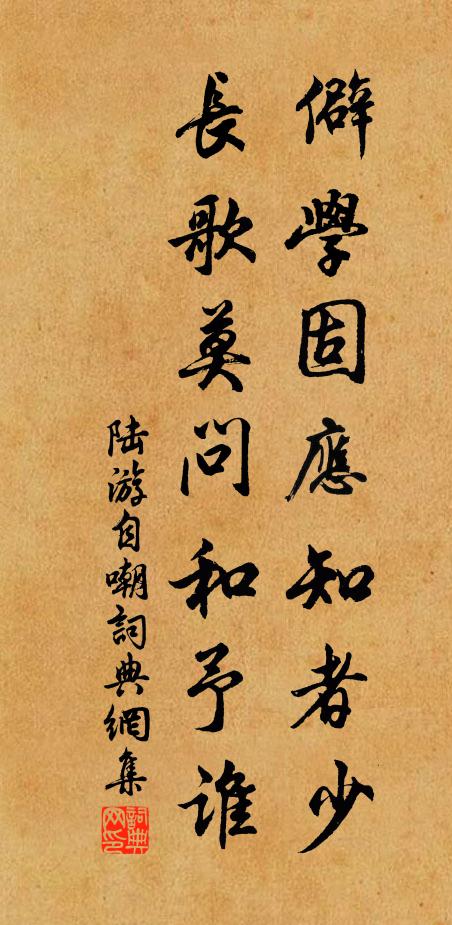 僻學固應知者少
長歌莫問和予誰
陆游自嘲詞典網集
詞典网印